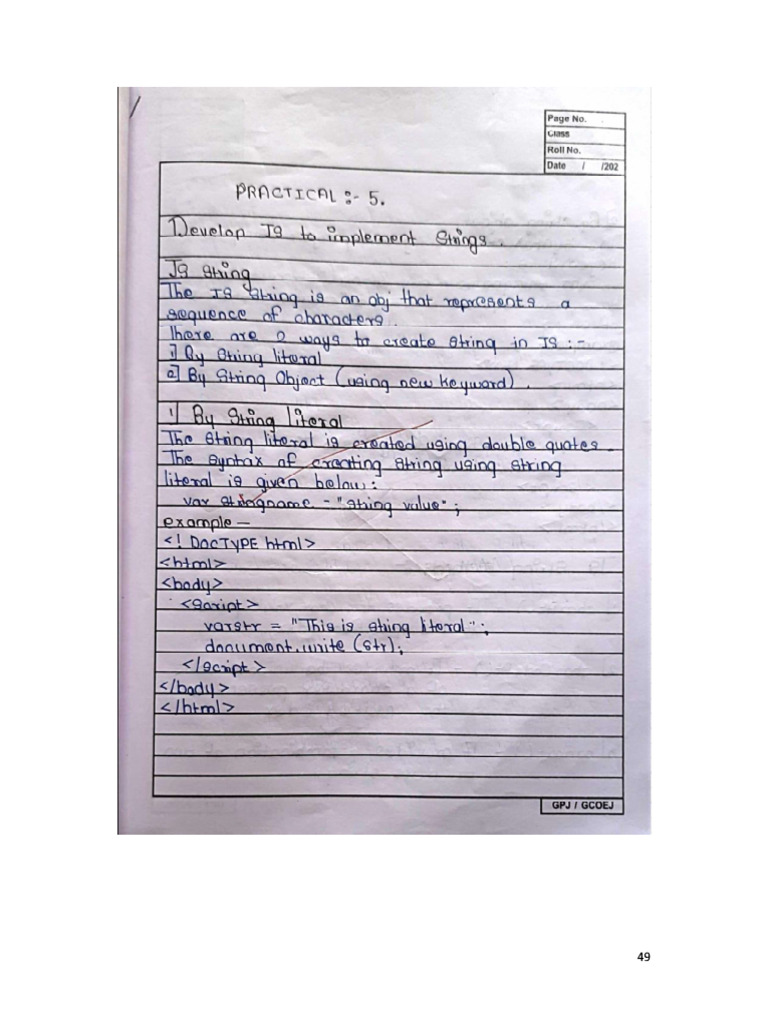 Page No.
Class
Roll No.
Date / /202
PRACTICAL :- 5.
Develop JS to implement Strings.
JS String
The JS String is an obj that represents a
sequence of characters.
There are 2 ways to create string in JS :-
1] By String literal
2] By String Object (using new keyword).
1] By String literal
The String literal is created using double quotes.
The syntax of creating string using string
literal is given below:
var stringname = "string value";
example —
<! DOCTYPE html>
<html>
<body>
<script>
varstr = "This is string literal";
document.write (str);
</script>
</body>
</html>
GPJ / GCOEJ
49